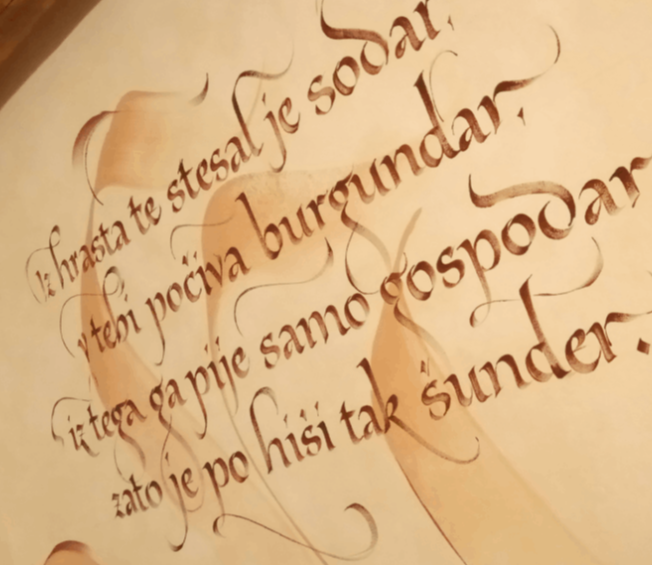 Iz hrasta te stesal je sodar,
v tebi počiva burgundar,
iz tega ga pije samo gospodar
zato je po hiši tak šunder.